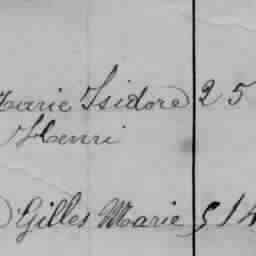 Marie Isidore 25
Henri
Gilles Marie 514